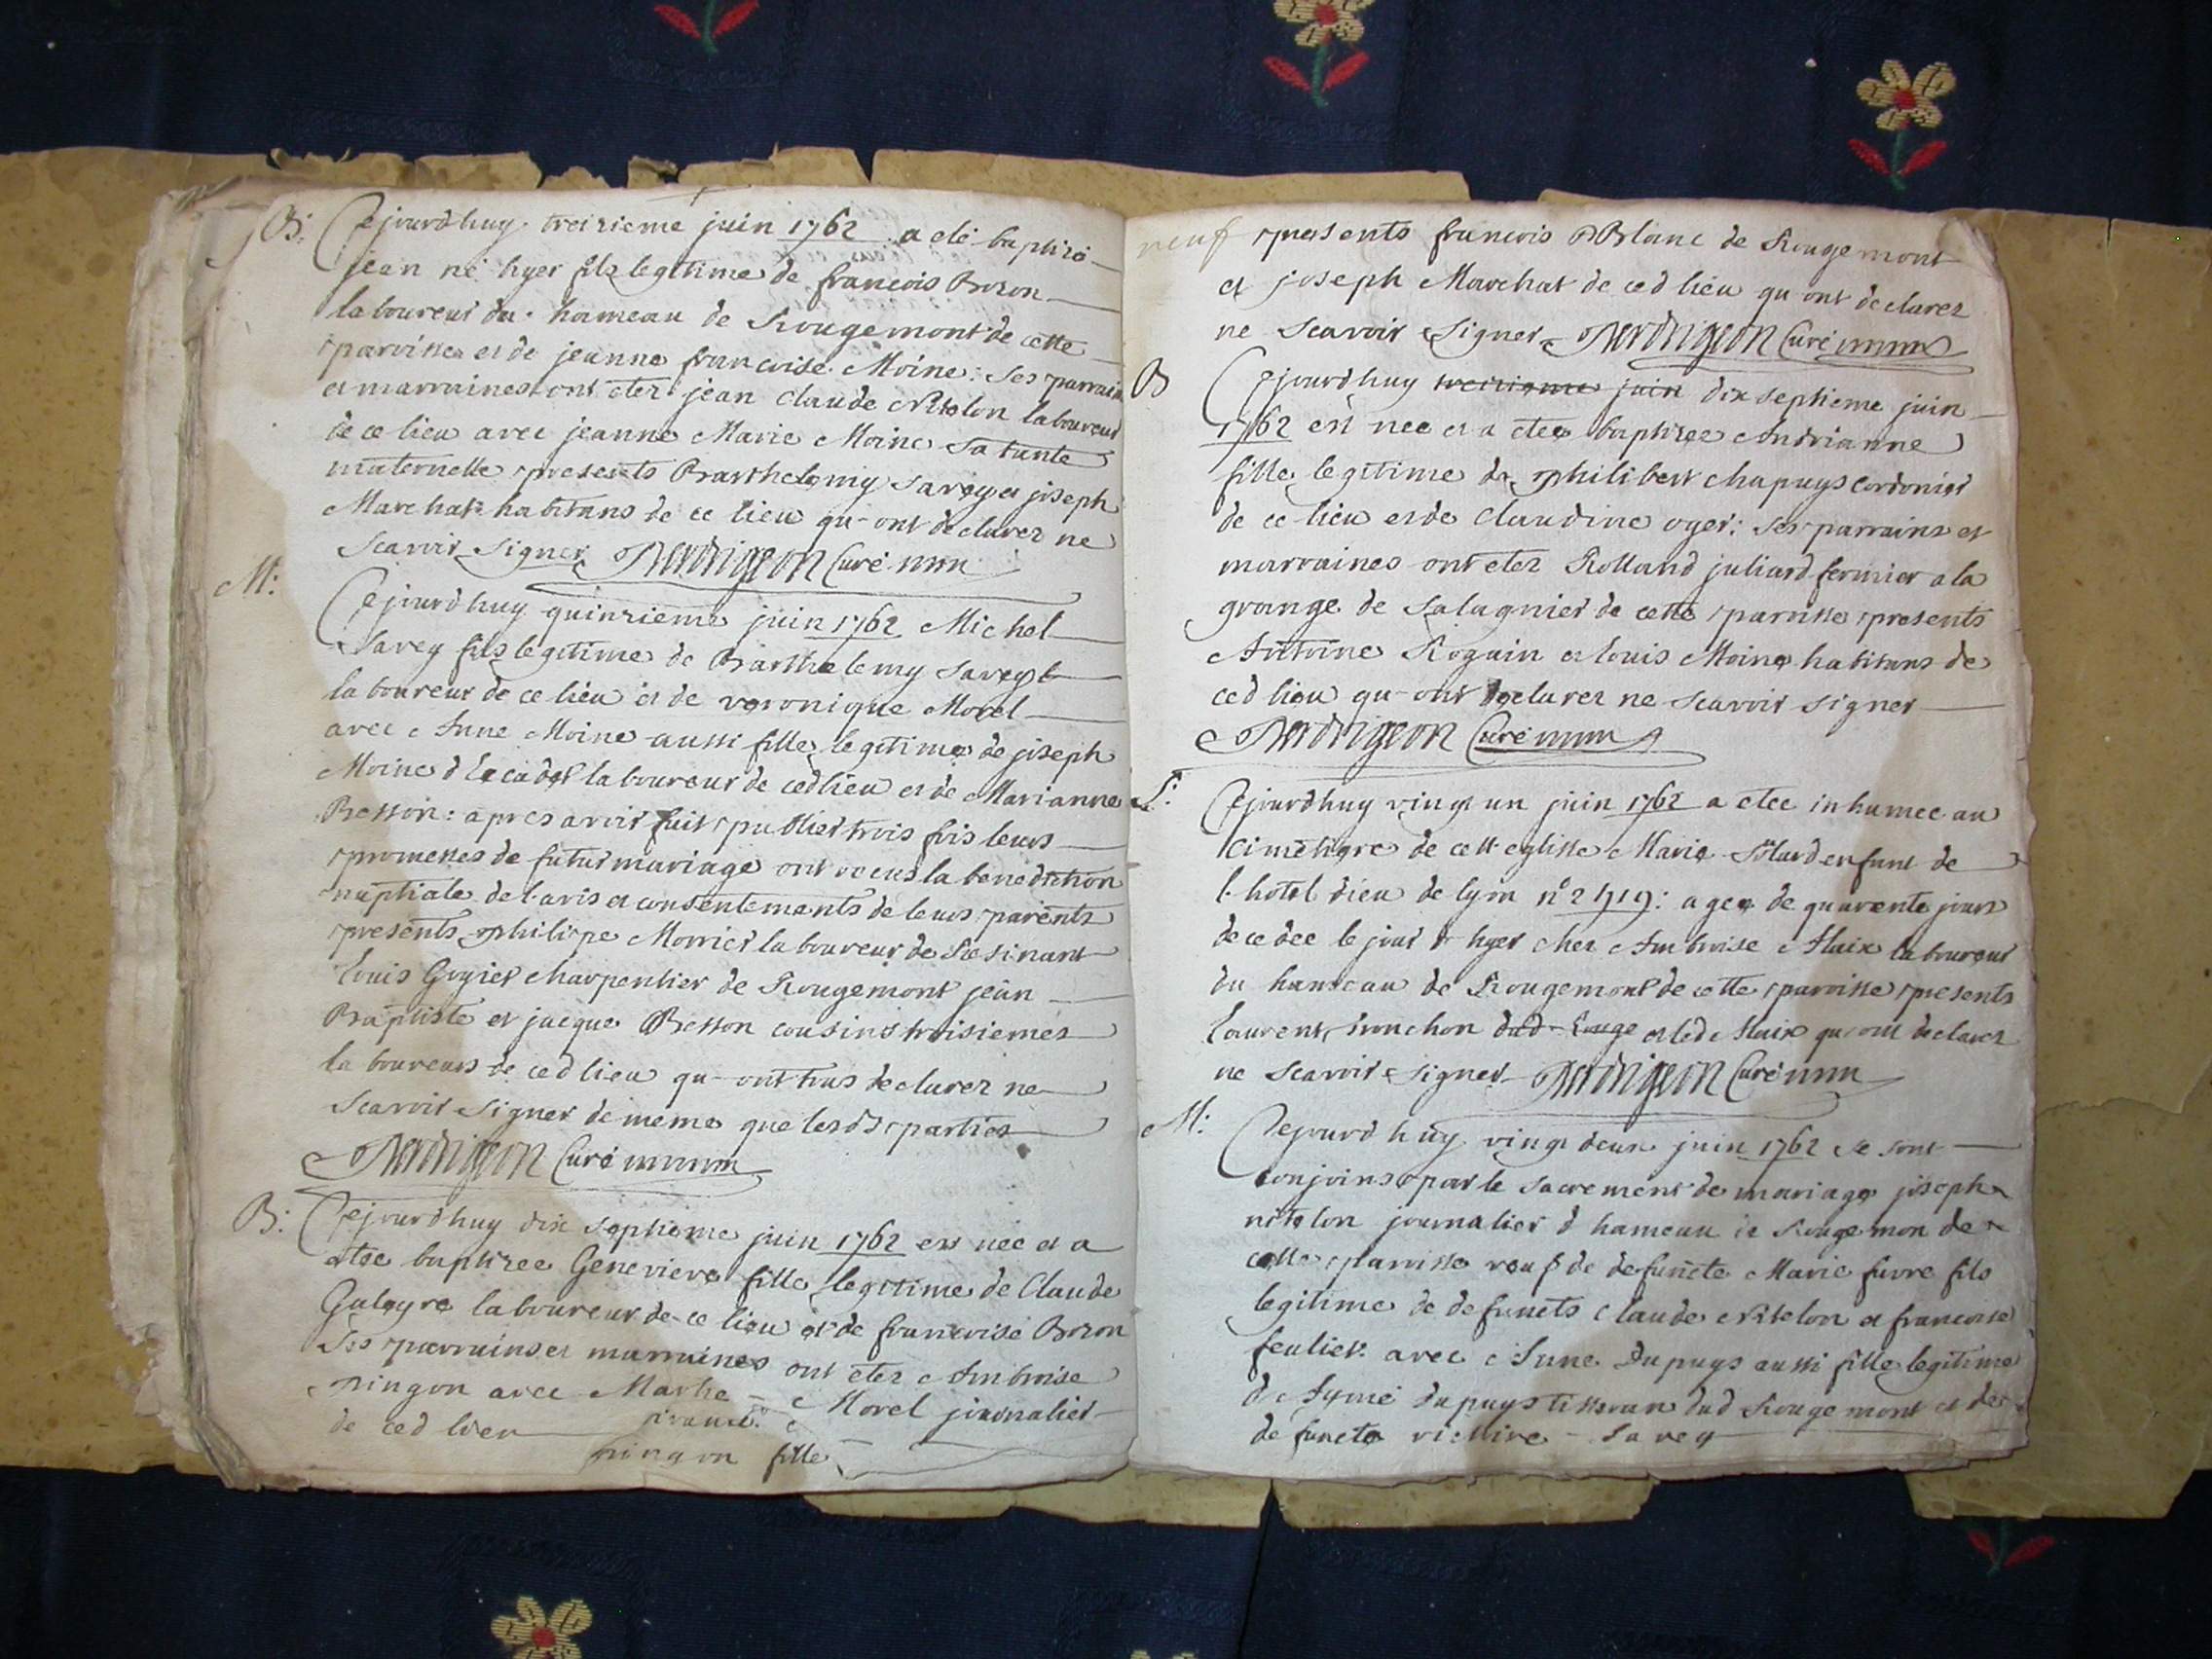 B: Cejourdhuy treizieme juin 1762 a eté baptizé
jean né hyer fils legitime de francois Bozon
laboureur du hameau de Rougemont de cette
parroisse et de jeanne francoise Moine: ses parrains
et marraines ont etez jean claude Nitelon laboureur
de ce lieu avec jeanne Marie Moine sa tante
maternelle presents Barthelemy Savey et joseph
Marchat habitans de ce lieu qu-ont declarez ne
scavoir signer Perdrigeon Curé
M: Cejourdhuy quinzieme juin 1762 Michel
Savey fils legitime de Barthelemy Savey
laboureur de ce lieu et de veronique Morel
avec Anne Moine aussi fille legitime de joseph
Moine laboureur de ced lieu et de Marianne
Besson: apres avoir fait publier trois fois leurs
promesses de futur mariage ont receus la benediction
nuptiale de l'avis et consentements de leurs parents
presents philippe Morrier laboureur de Resinant
louis Goyier charpentier de Rougemont jean
Baptiste et jacque Besson cousins troisiemes
laboureurs de ced lieu qu-ont tous declarez ne
scavoir signer de meme que lesd parties
Perdrigeon Curé
B: Cejourdhuy dix septieme juin 1762 est née et a
etee baptizee Genevieve fille legitime de Claude
Galeyre laboureur de ce lieu et de francoise Bozon
ses parrains et marraines ont etez Ambroise
pingon avec Marhe Morel journalier
de ced lieu
pingon fille
neuf presents francois Blanc de Rougemont
et joseph Marchat de ced lieu qu ont declarez
ne scavoir signer Perdrigeon Curé
B Cejourdhuy treizieme juin dix septieme juin
1762 est nee et a etee baptizee Andrianne
fille legitime de philibert chapuys cordonier
de ce lieu et de claudine oyer: ses parrains et
marraines ont etez Rolland juliard fermier a la
grange de Salagnier de cette parroisse presents
Antoine Roguin et louis Moine habitans de
ced lieu qu-ont declarez ne scavoir signer
Perdrigeon Curé
S: Cejourdhuy vingt un juin 1762 a etee inhumee au
cimetiere de cett eglisse Marie enfant de
l'hotel dieu de lyon n° 2719: agee de quarente jours
decedee le jour d hyer chez Ambroise Alaix laboureur
du hameau de Rougemont de cette parroisse presents
laurent tronchon dud Rouge et led Alaix qu ont declarez
ne scavoir signer Perdrigeon Curé
M: Cejourdhuy vingt deux juin 1762 se sont
conjoins par le sacrement de mariage joseph
nitelon journalier d hameau de Rougemon de
cette parroisse veuf de defuncte Marie favre fils
legitime de defuncts claude Nitelon et francoise
feuliet avec Anne Dupuys aussi fille legitime
d Aymé dupuys tisseran dud Rougemont et de
defuncte victire Savey